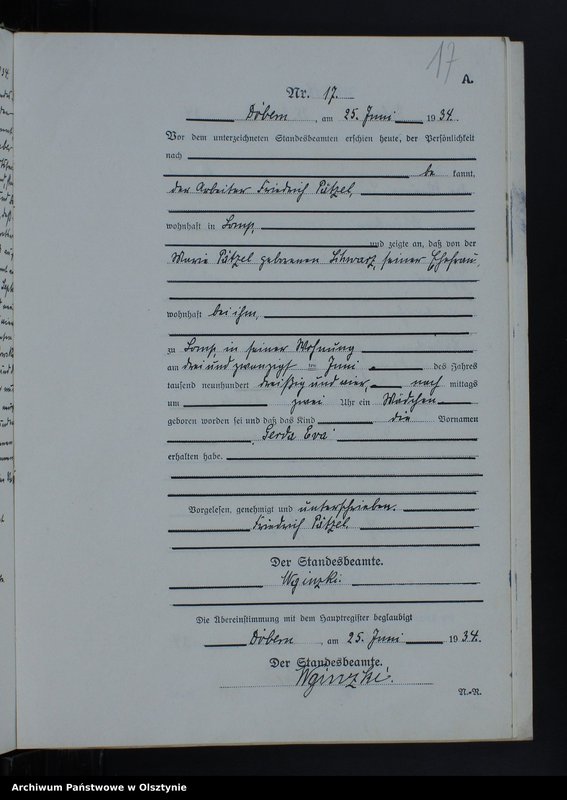 17
A.
Nr. 17.
Döbern, am 25. Juni 1934.
Vor dem unterzeichneten Standesbeamten erschien heute, der Persönlichkeit
nach
be kannt,
der Arbeiter Friedrich Pätzel,
wohnhaft in Lomp,
und zeigte an, daß von der
Marie Pätzel geborenen Schwarz, seiner Ehefrau,
wohnhaft bei ihm,
zu Lomp, in seiner Wohnung
am drei und zwanzigst ten Juni des Jahres
tausend neunhundert dreißig und vier, nach mittags
um zwei Uhr ein Mädchen
geboren worden sei und daß das Kind die Vornamen
Gerda Eva
erhalten habe.
Vorgelesen, genehmigt und unterschrieben.
Friedrich Pätzel.
Der Standesbeamte.
Die Übereinstimmung mit dem Hauptregister beglaubigt
Döbern, am 25. Juni 1934.
Der Standesbeamte.
N.-R.
Archiwum Państwowe w Olsztynie